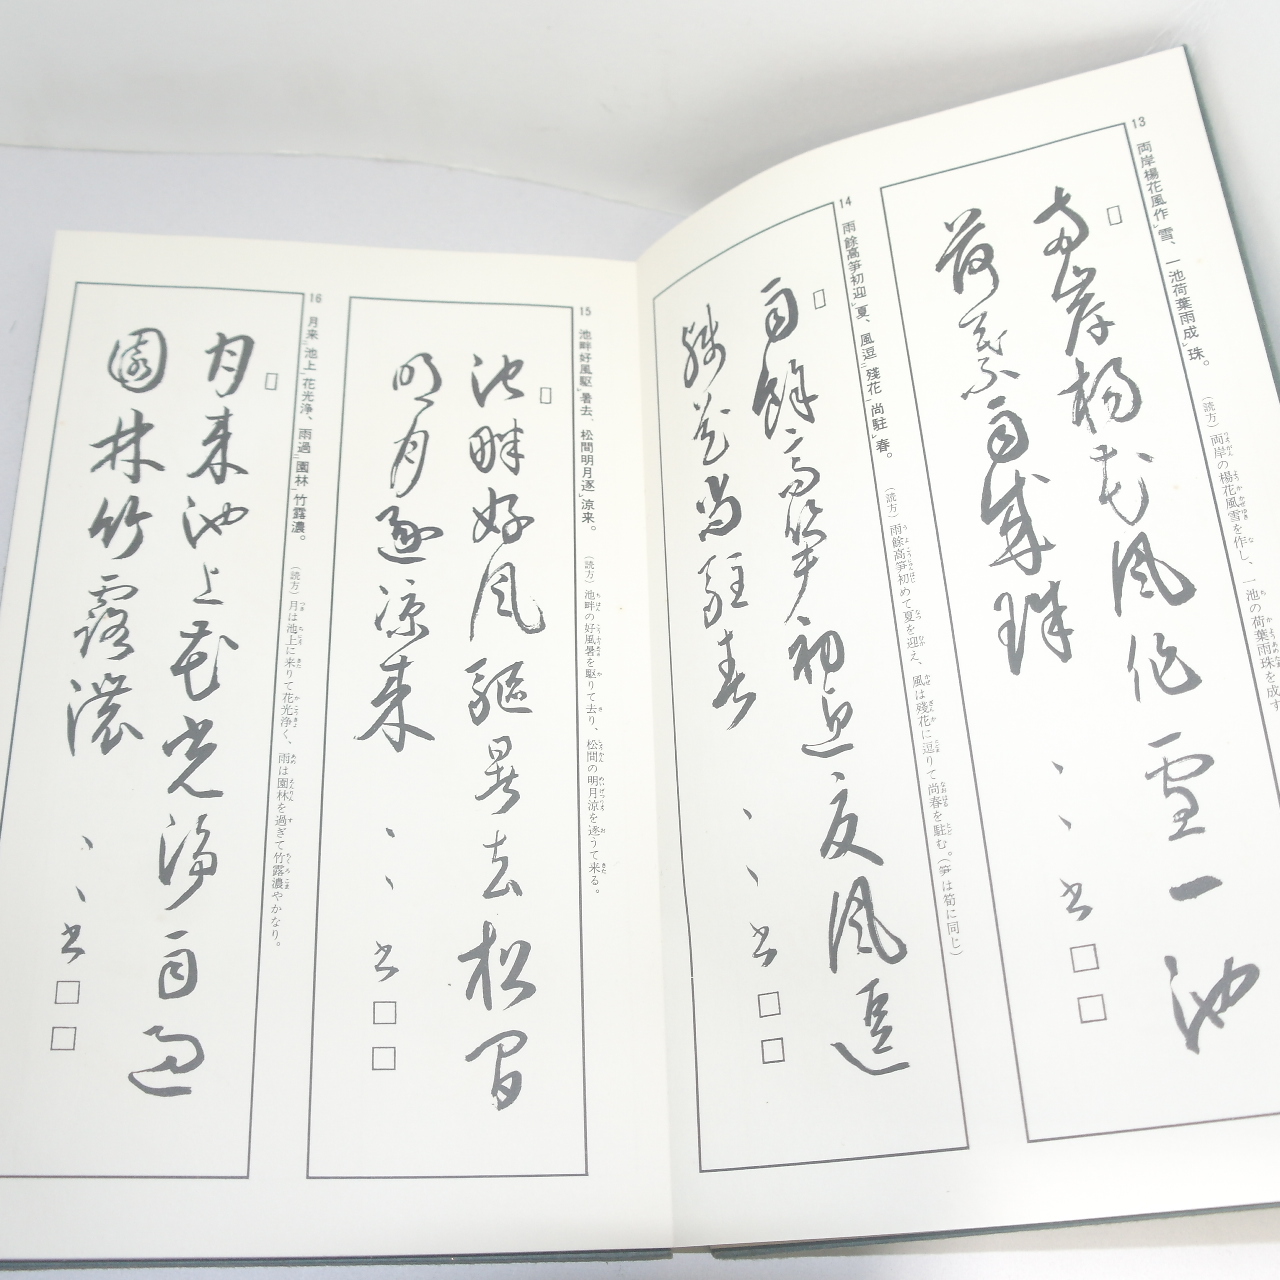 13 両岸楊花風作レ雪、一池荷葉雨成レ珠。
(読方)両岸の楊花風雪を作し、一池の荷葉雨珠を成す
両岸楊花風作雪一池
荷葉雨成珠
、、書
14 雨餘高笋初迎レ夏、風逗二殘花一尚駐レ春。
(読方)雨餘高笋初めて夏を迎え、風は殘花に逗りて尚春を駐む。(笋は筍に同じ)
雨餘高笋初迎夏風逗
殘花尚駐春
、、書
15 池畔好風駆レ暑去、松間明月逐レ涼来。
(読方)池畔の好風暑を駆りて去り、松間の明月涼を逐うて来る。
池畔好風驅暑去松間
明月逐涼来
、、書
16 月来二池上一花光浄、雨過二園林一竹露濃。
(読方)月は池上に来りて花光浄く、雨は園林を過ぎて竹露濃やかなり。
月来池上花光浄雨過
園林竹露濃
、、書